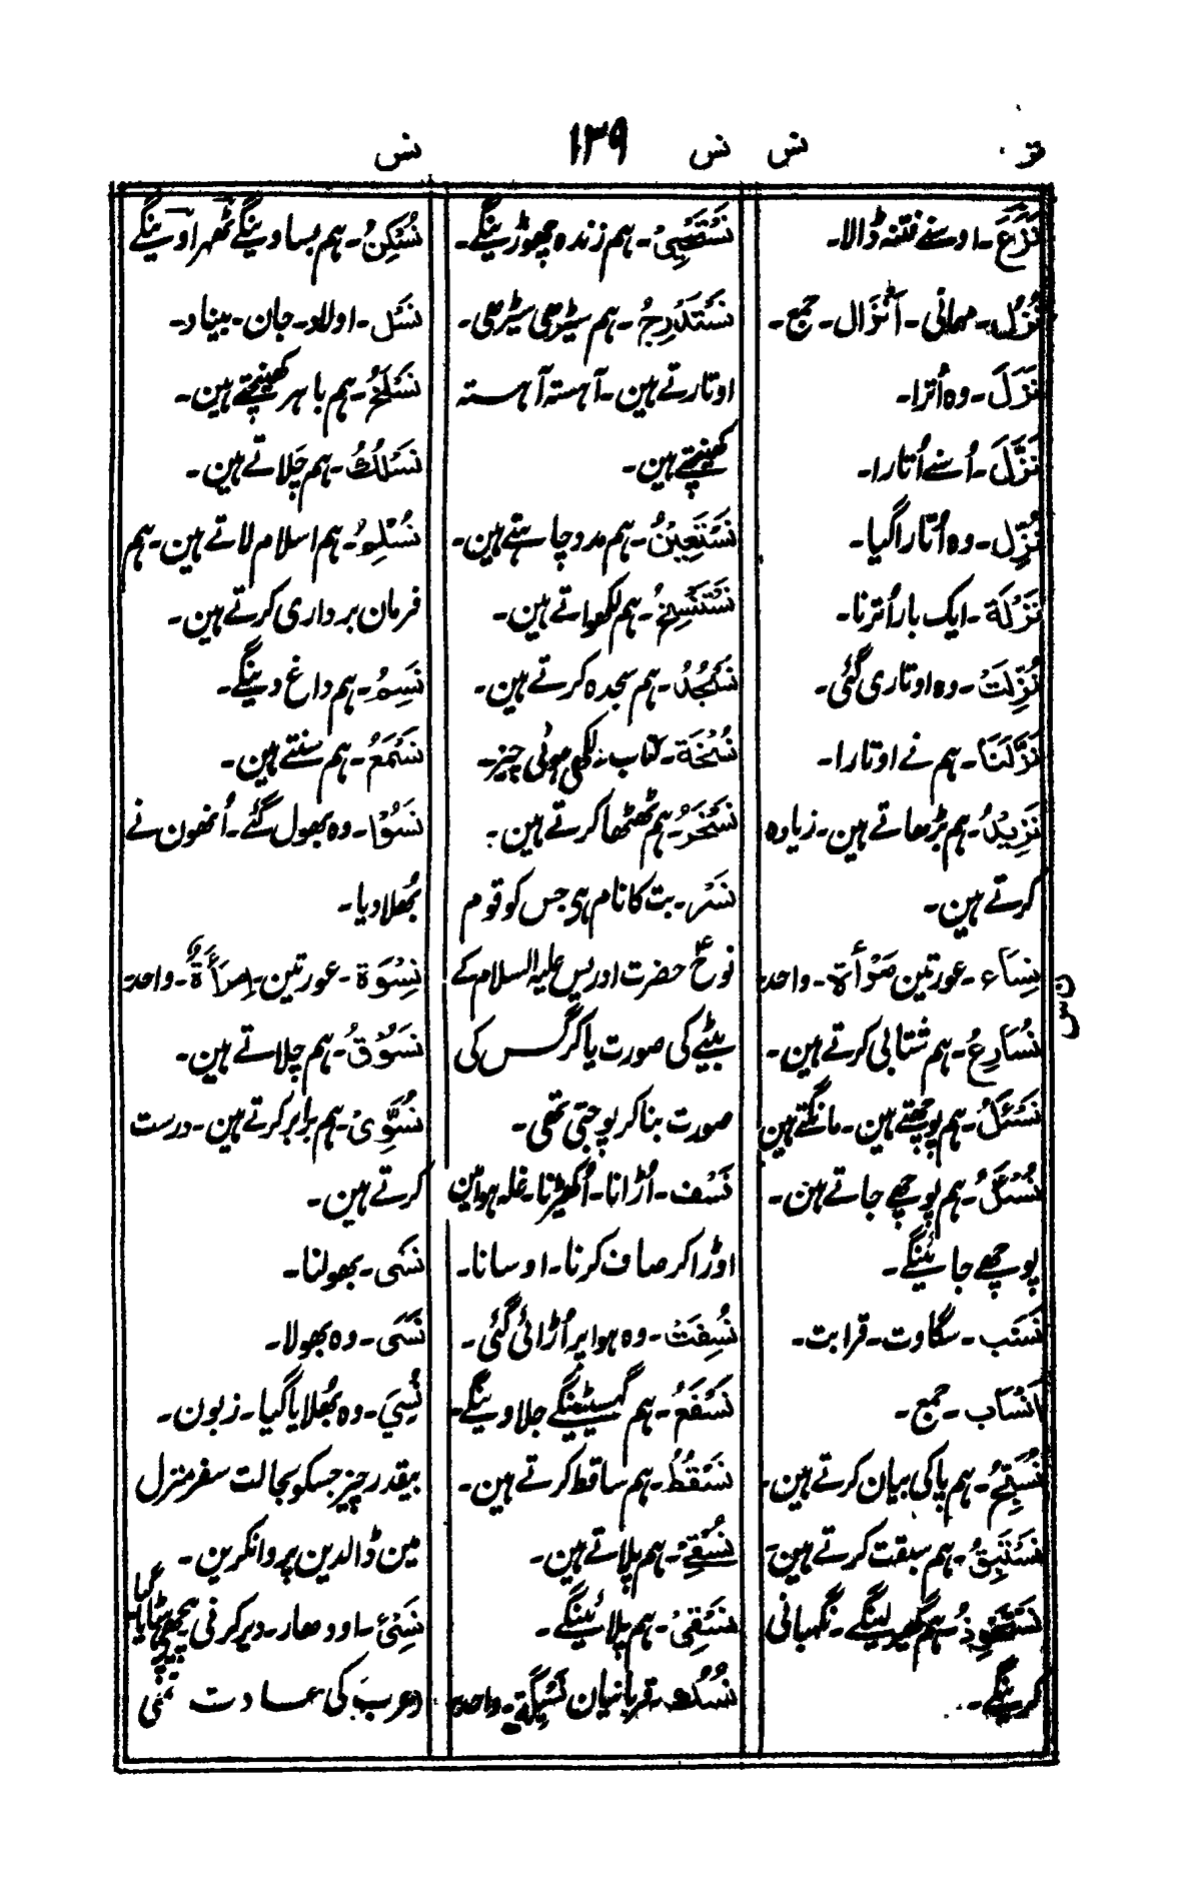 نز نس نس ۱۳۹ نس
نَزَغَ۔ اوسنے فتنہ ڈالا۔
نُزُل۔ مہمانی۔ اَنْزَال۔ جمع۔
نَزَلَ۔ وہ اُترا۔
نَزَّلَ۔ اُسنے اُتارا۔
نُزِّل۔ وہ اُتارا گیا۔
نَزْلَة۔ ایک بار اُترنا۔
نُزِّلَتْ۔ وہ اوتاری گئی۔
نَزَّلْنَا۔ ہم نے اوتارا۔
نَزِیْدُ۔ ہم بڑھاتے ہین۔ زیادہ
کرتے ہین۔
نِسَاء۔ عورتین مَرْأَة۔ واحد۔
نس
نُسَارِعُ۔ ہم شتابی کرتے ہین۔
نَسْئَلُ۔ ہم پوچھتے ہین۔ مانگتے ہین
نُسْئَلُ۔ ہم پوچھے جاتے ہین۔
پوچھے جائینگے۔
نَسَب۔ سگاوت۔ قرابت۔
اَنْسَاب۔ جمع۔
نُسَبِّحُ۔ ہم پاکی بیان کرتے ہین۔
نَسْتَبِقُ۔ ہم سبقت کرتے ہین۔
نَسْتَحْوِذُ۔ ہم گھیر لینگے۔ نگہبانی
کرینگے۔
نَسْتَحْیِیْ۔ ہم زندہ چھوڑینگے۔
نَسْتَدْرِجُ۔ ہم سیڑھی سیڑھی۔
اوتارتے ہین۔ آہستہ آہستہ
کھینچتے ہین۔
نَسْتَعِیْنُ۔ ہم مدد چاہتے ہین۔
نَسْتَنْسِخُ۔ ہم لکھواتے ہین۔
نَسْجُدُ۔ ہم سجدہ کرتے ہین۔
نُسْخَة۔ کتاب۔ لکھی ہوئی چیز۔
نَسْخَرُ۔ ہم ٹھٹھا کرتے ہین۔
نَسْر۔ بت کا نام ہی جس کو قوم
نوحؑ حضرت ادریس علیہ السلام کے
بیٹے کی صورت یا کرگس کی
صورت بنا کر پوجتی تھی۔
نَسْف۔ اُڑانا۔ اُکھیڑنا۔ غلہ ہوا مین
اوڑا کر صاف کرنا۔ اوسانا۔
نُسِفَتْ۔ وہ ہوا پر اُڑائی گئی۔
نَسْفَعُ۔ ہم گھسیٹینگے جلاوینگے۔
نُسْقِطُ۔ ہم ساقط کرتے ہین۔
نُسْقِیْ۔ ہم پلاتے ہین۔
نَسْقِیْ۔ ہم پلائینگے۔
نُسُك۔ قربانیان نَسِیْكَة۔ واحد۔
نُسْکِنُ۔ ہم بساوینگے ٹھہراوینگے
نَسْل۔ اولاد۔ جان۔ بنیاد۔
نَسْلَخُ۔ ہم باہر کھینچتے ہین۔
نَسْلُكُ۔ ہم چلاتے ہین۔
نُسْلِمُ۔ ہم اسلام لاتے ہین۔ ہم
فرمان برداری کرتے ہین۔
نَسِمُ۔ ہم داغ دینگے۔
نَسْمَعُ۔ ہم سنتے ہین۔
نَسُوْا۔ وہ بھول گئے۔ اُنھون نے
بُھلا دیا۔
نِسْوَة۔ عورتین۔ اِمْرَأَةٌ۔ واحد
نَسُوْقُ۔ ہم چلاتے ہین۔
نُسَوِّیْ۔ ہم برابر کرتے ہین۔ درست
کرتے ہین۔
نَسْی۔ بھولنا۔
نَسِیَ۔ وہ بھولا۔
نُسِیَ۔ وہ بُھلایا گیا۔ زبون۔
بیقدر چیز جسکو بحالت سفر منزل
مین ڈالدین پروا نکرین۔
نَسِیْئ۔ اودھار۔ دیر کرنی پیچھے ہٹایا گیا
دعرب کی عادت تھی